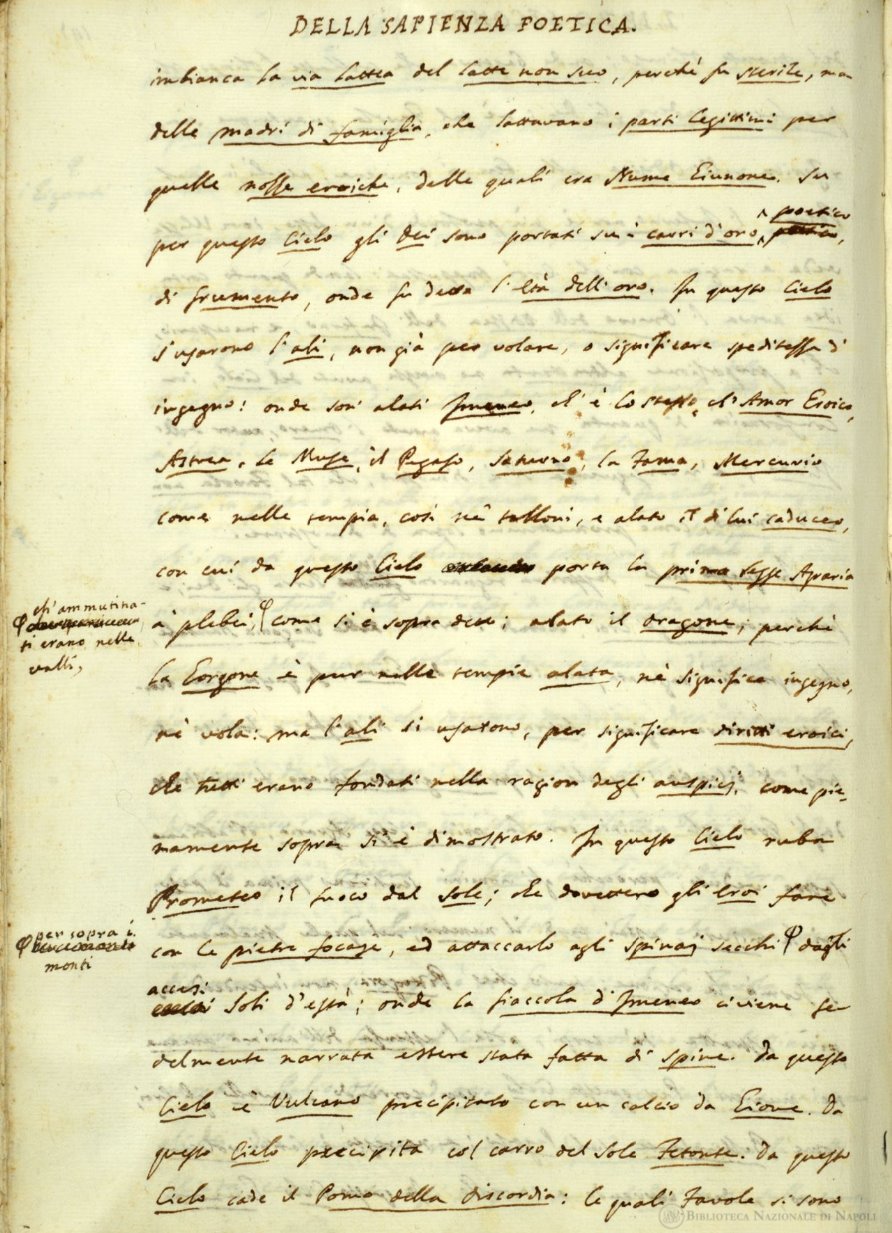 DELLA SAPIENZA POETICA.
imbianca la via lattea del latte non suo, perchè fu sterile, ma
delle madri di famiglia, che lattavano i parti legittimi per
quelle nozze eroiche, delle quali era Nume Giunone. Su
poetico
per questo Cielo gli Dei sono portati su i carri d'oro
di frumento, onde fu detta l'età dell'oro. In questo Cielo
s'usarono l'ali, non già per volare, o significare speditezza d'
ingegno: onde son' alati Imeneo, ch' è lo stesso, ch' Amor Eroico,
Astrea, le Muse, il Pegaso, Saturno, la Fama, Mercurio
come nelle tempia, così nè talloni, e alato il di lui caduceo,
con cui da questo Cielo porta la prima legge Agraria
ch' ammutina-
ti erano nelle
valli,
a' plebei, come si è sopra detto; alato il dragone; perchè
la Gorgone è pur nelle tempie alata, nè significa ingegno,
nè vola: ma l'ali si usarono, per significare diritti eroici,
che tutti erano fondati nella ragion degli auspicj, come pie-
namente sopra si è dimostrato. In questo Cielo ruba
Prometeo il fuoco dal Sole; che dovettero gli Eroi fare
per sopra i
monti
con le pietre focaje, ed attaccarlo agli spinaj secchi dagli
accesi
Soli d'està; onde la fiaccola d' Imeneo civiene fe-
delmente narrata essere stata fatta di spine. Da questo
Cielo è Vulcano precipitato con un calcio da Giove. Da
questo Cielo precipita col carro del Sole Fetonte. Da questo
Cielo cade il Pomo della discordia: le quali Favole si sono
BIBLIOTECA NAZIONALE DI NAPOLI